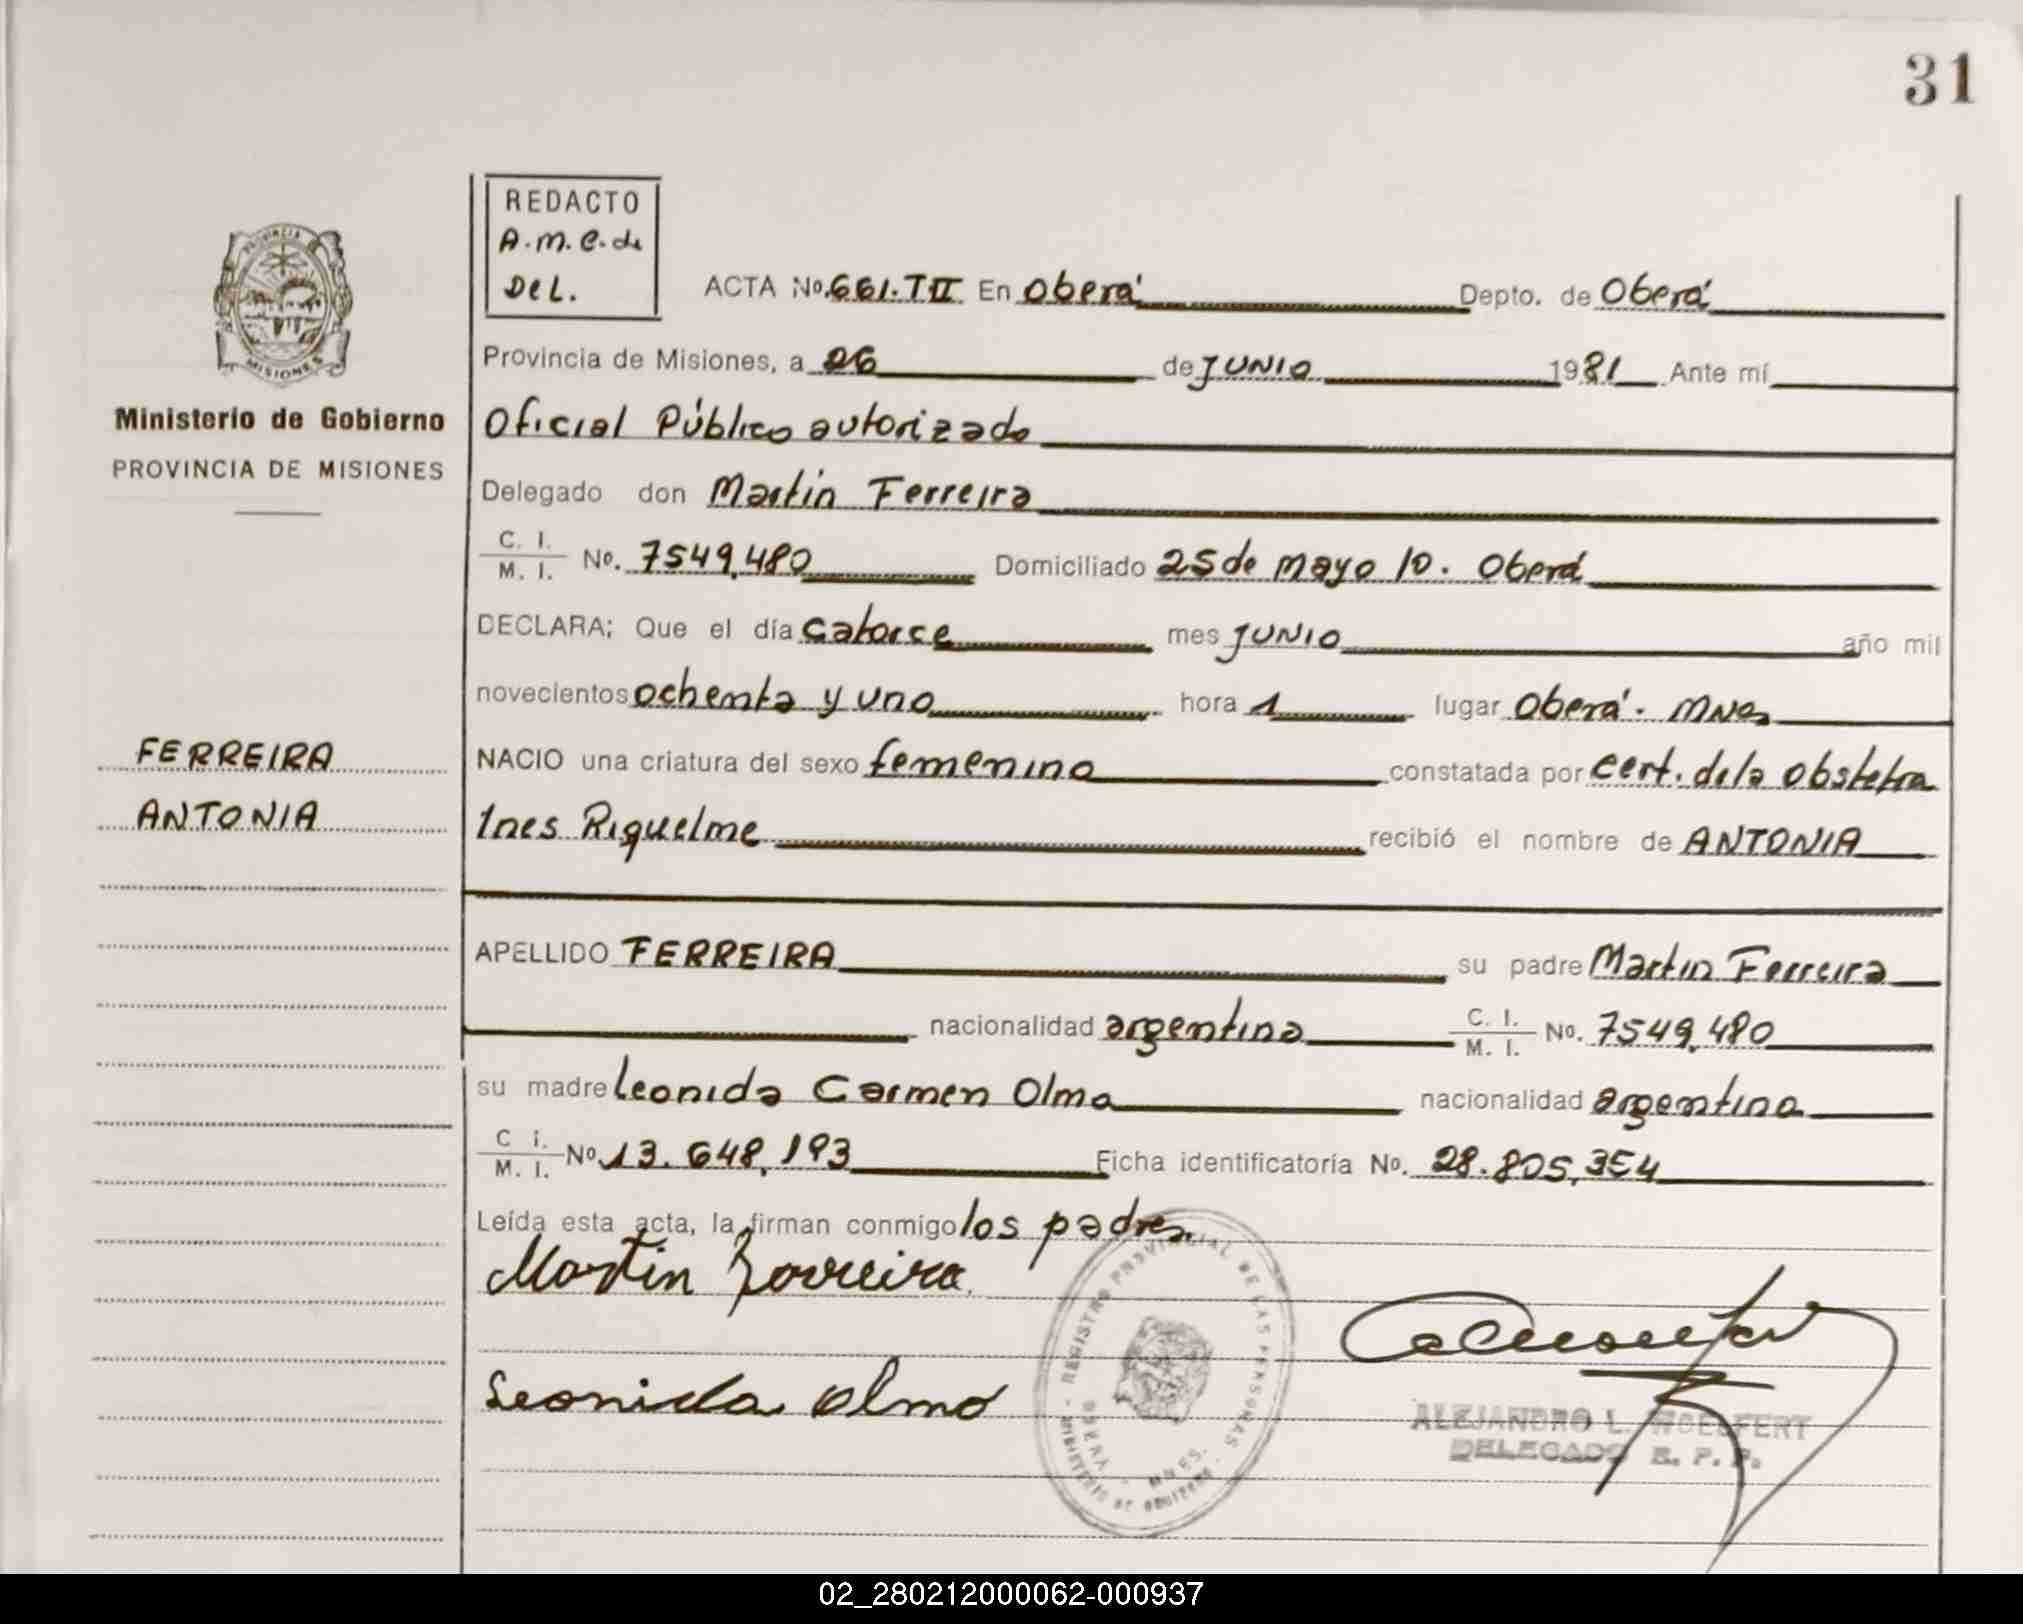 31
REDACTO
A.M.C. de
DEL.
ACTA No. 661. T II En Oberá Depto. de Oberá
Provincia de Misiones, a 26 de JUNIO 1981 Ante mí
Oficial Público autorizado
Delegado don Martin Ferreira
C. I. / M. I. No. 7549.480 Domiciliado 25 de Mayo 10. Oberá
DECLARA; Que el día catorce mes JUNIO año mil
novecientos ochenta y uno hora 1 lugar Oberá. MNes
NACIO una criatura del sexo femenino constatada por cert. de la obstetra
Ines Riquelme recibió el nombre de ANTONIA
APELLIDO FERREIRA su padre Martin Ferreira
nacionalidad argentina C. I. / M. I. No. 7549.480
su madre Leonida Carmen Olmo nacionalidad argentina
C i. / M. I. No 13.648.193 Ficha identificatoria No. 28.805.354
Leída esta acta, la firman conmigo los padres
Martin Ferreira.
Leonida Olmo
REGISTRO PROVINCIAL DE LAS PERSONAS - MINISTERIO DE GOBIERNO
OBERA - MNES.
ALEJANDRO L. WOELFERT
DELEGADO R. P. P.
PROVINCIA
MISIONES
Ministerio de Gobierno
PROVINCIA DE MISIONES
FERREIRA
ANTONIA
02_280212000062-000937